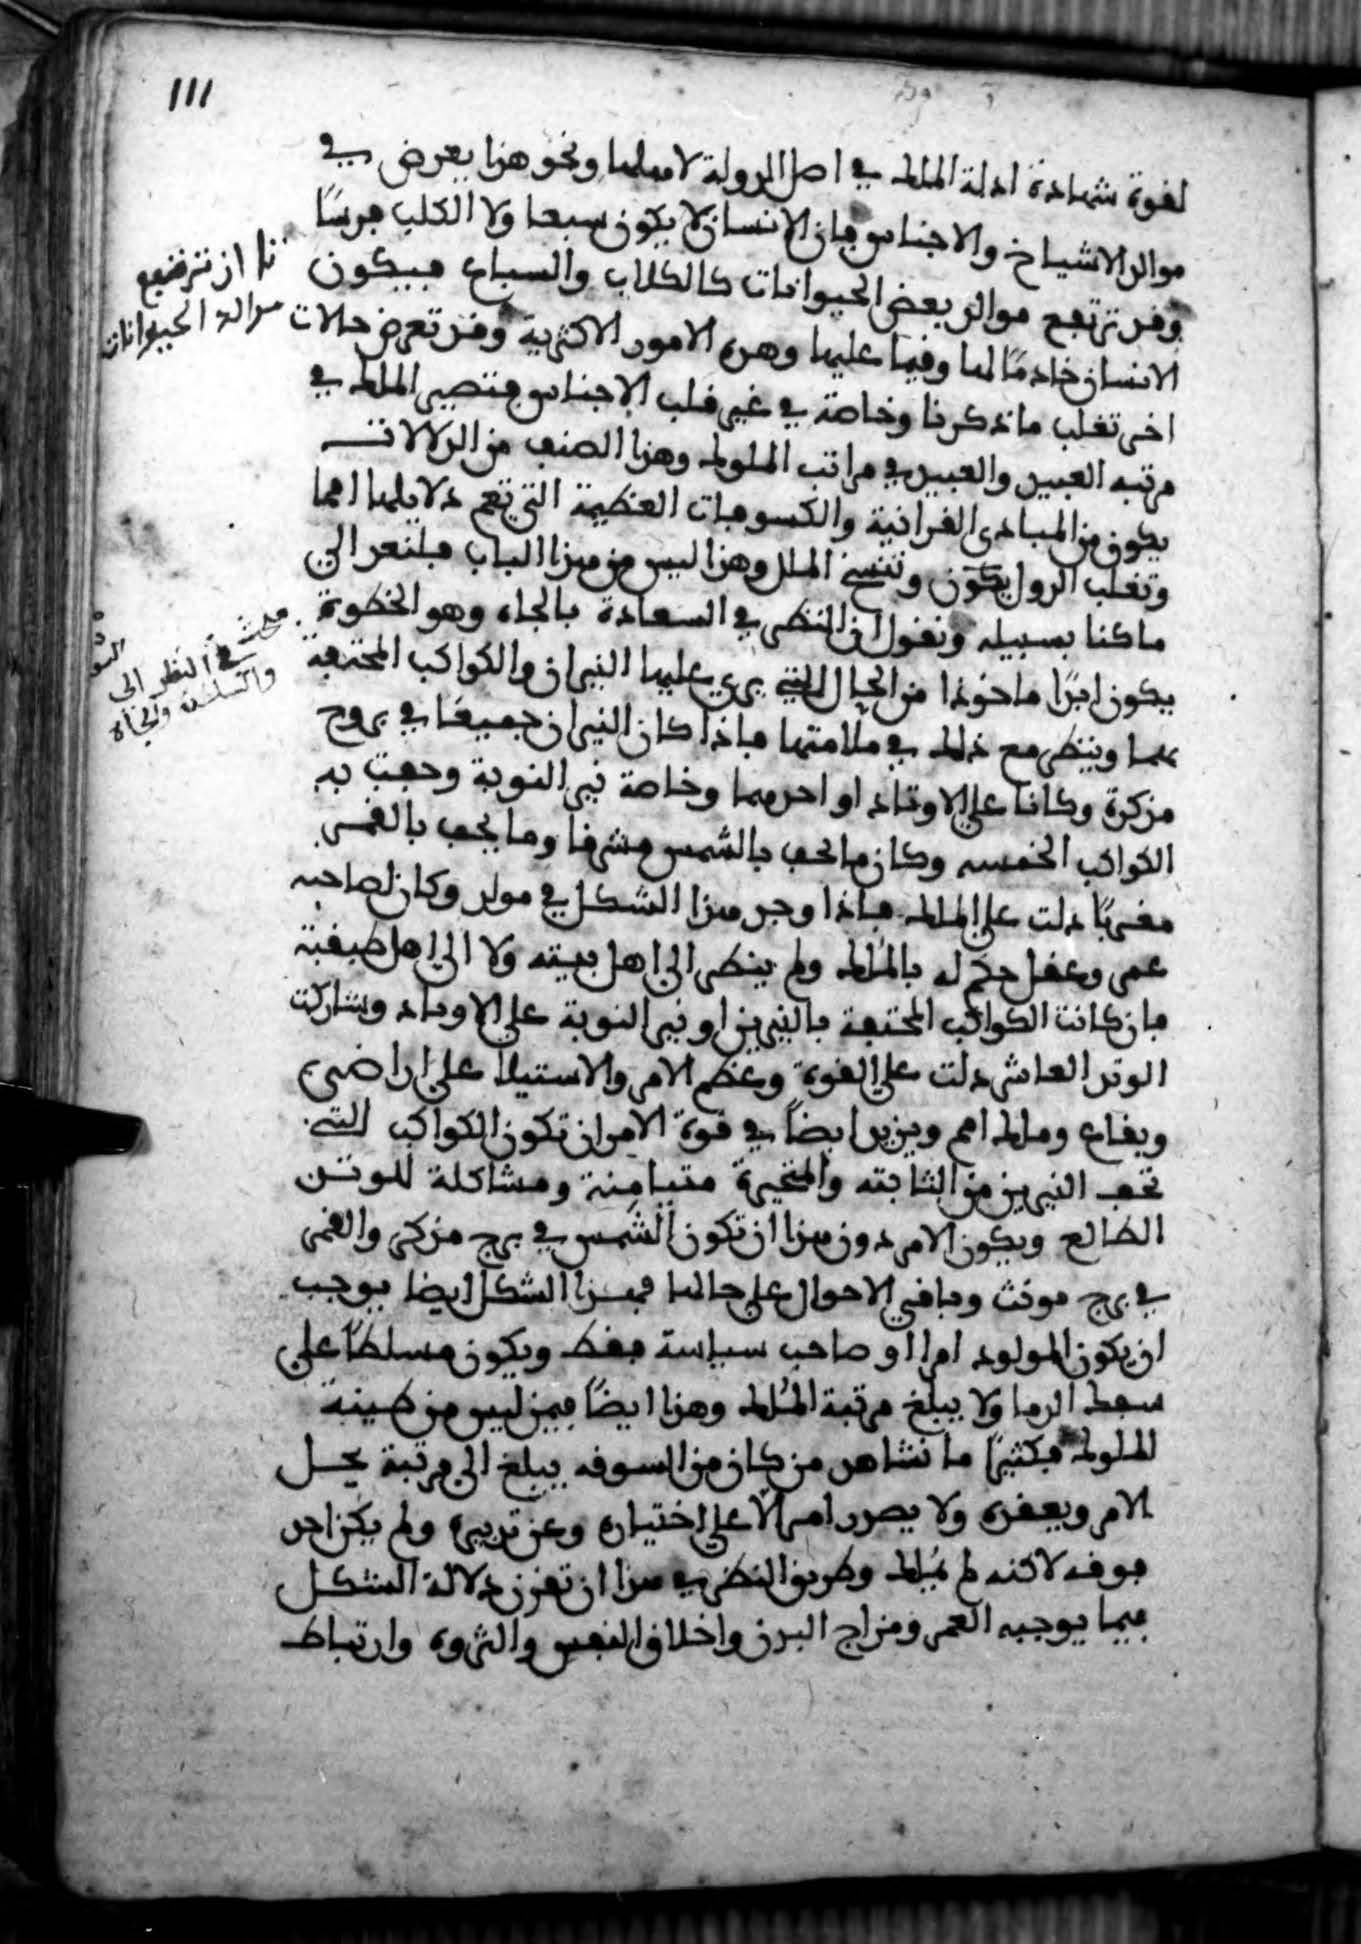 111
لقوة شهادة ادلة الملك في اصل الدولة لا مثلها ونحو هذا يعرض في
موالد الاشياخ والاجناس فان الانسان لا يكون سبعا ولا الكلب فرسًا
وقد ترتفع موالد بعض الحيوانات كالكلاب والسباع فيكون
الانسان خادمًا لها وقيما عليها وهذه الامور الاكثرية وقد تعرض حالات
اخر تغلب ما ذكرنا وخاصة في غير قلب الاجناس فتصير الملك في
مرتبة العبيد والعبيد في مراتب الملوك وهذا الصنف من الدلالات
يكون من المبادى القرانية والكسوفات العظيمة التي تعم دلايلها امما
وتغلب الدول بكون وتنسخ الملل وهذا ليس من هذا الباب فلنعد الي
ما كنا بسبيله ونقول ان النظر في السعادة بالجاه وهو الحظوة
يكون ابدًا ماخوذا من الحال التي يرى عليها النيران والكواكب المحتفة
بهما وينظر مع ذلك في ملامتها فاذا كان النيران جميعًا في بروج
مذكرة وكانا علي الاوتاد او احدهما وخاصة نير النوبة وحفت به
الكواكب الخمسه وكان ما يحف بالشمس مشرقا وما يحف بالقمر
مغربًا دلت علي الملك فاذا وجد هذا الشكل في مولد وكان لصاحبه
عمر وعقل حكم له بالمُلك ولم ينظر الي اهل بيته ولا الي اهل طبقته
فان كانت الكواكب المحتفة بالنيرين او نير النوبة علي الاوتاد وشاركت
الوتد العاشر دلت علي القوة وعظم الامر والاستيلا علي اراضي
وبقاع وملك امم ويزيد ايضاً في قوة الامر ان تكون الكواكب التي
تحف النيرين من الثابته والمتحيرة متيامنة ومشاكلة للوتد
الطالع ويكون الامر دون هذا ان تكون الشمس في برج مذكر والقمر
في برج مونث وباقي الاحوال علي حالها فهذا الشكل ايضا يوجب
ان يكون المولود اميرا او صاحب سياسة فقط ويكون مسلطاً علي
سفك الدما ولا يبلغ مرتبة المُلك وهذا ايضاً فيمن ليس من طينة
الملوك فكثيرًا ما نشاهد من كان من السوقه يبلغ الي مرتبة يحل
الامر ويعقده ولا يصدر امر الا علي اختياره وعن تدبيره ولم يكن احد
فوقه لاكنه لم يملك وطريق النظر في هذا ان تقرن دلالة الشكل
فيما يوجبه العمر ومزاج البدن واخلاق النفس والثروة وارتباط
ان ترتفع
موالد الحيوانات
مبحث في النظر الى
والسلطنه والجاه